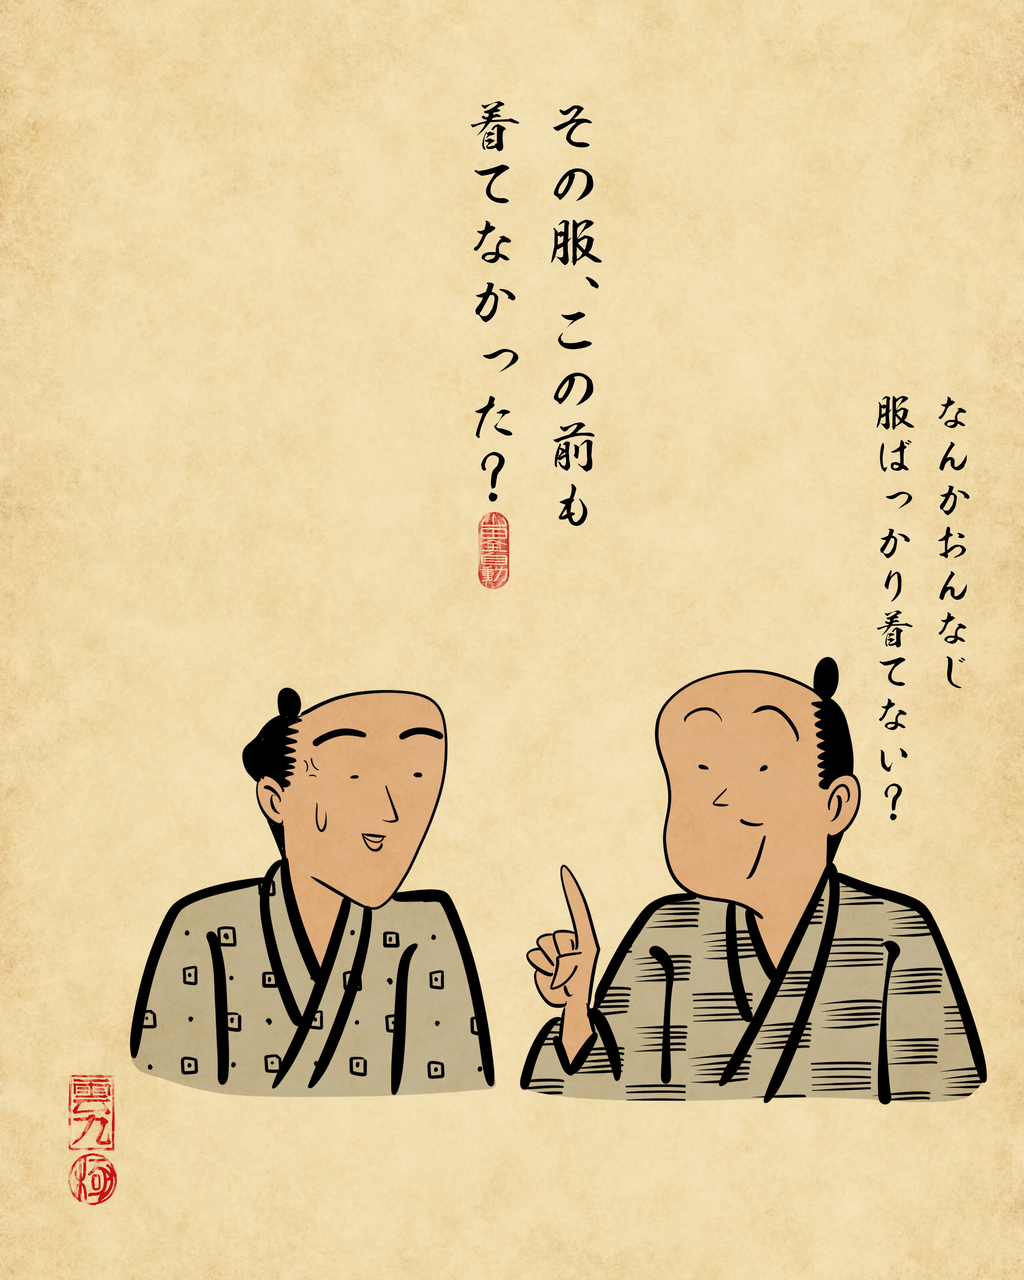 その服、この前も
着てなかった？
なんかおんなじ
服ばっかり着てない？
雲
九
極